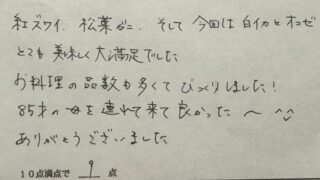 紅ズワイ、松葉ガニ、そして今回は白イカとオコゼ
とても美味しく大満足でした
お料理の品数も多くてびっくりしました!
85才の母を連れて来て良かった〜 ^◡^
ありがとうございました
10点満点で 9 点